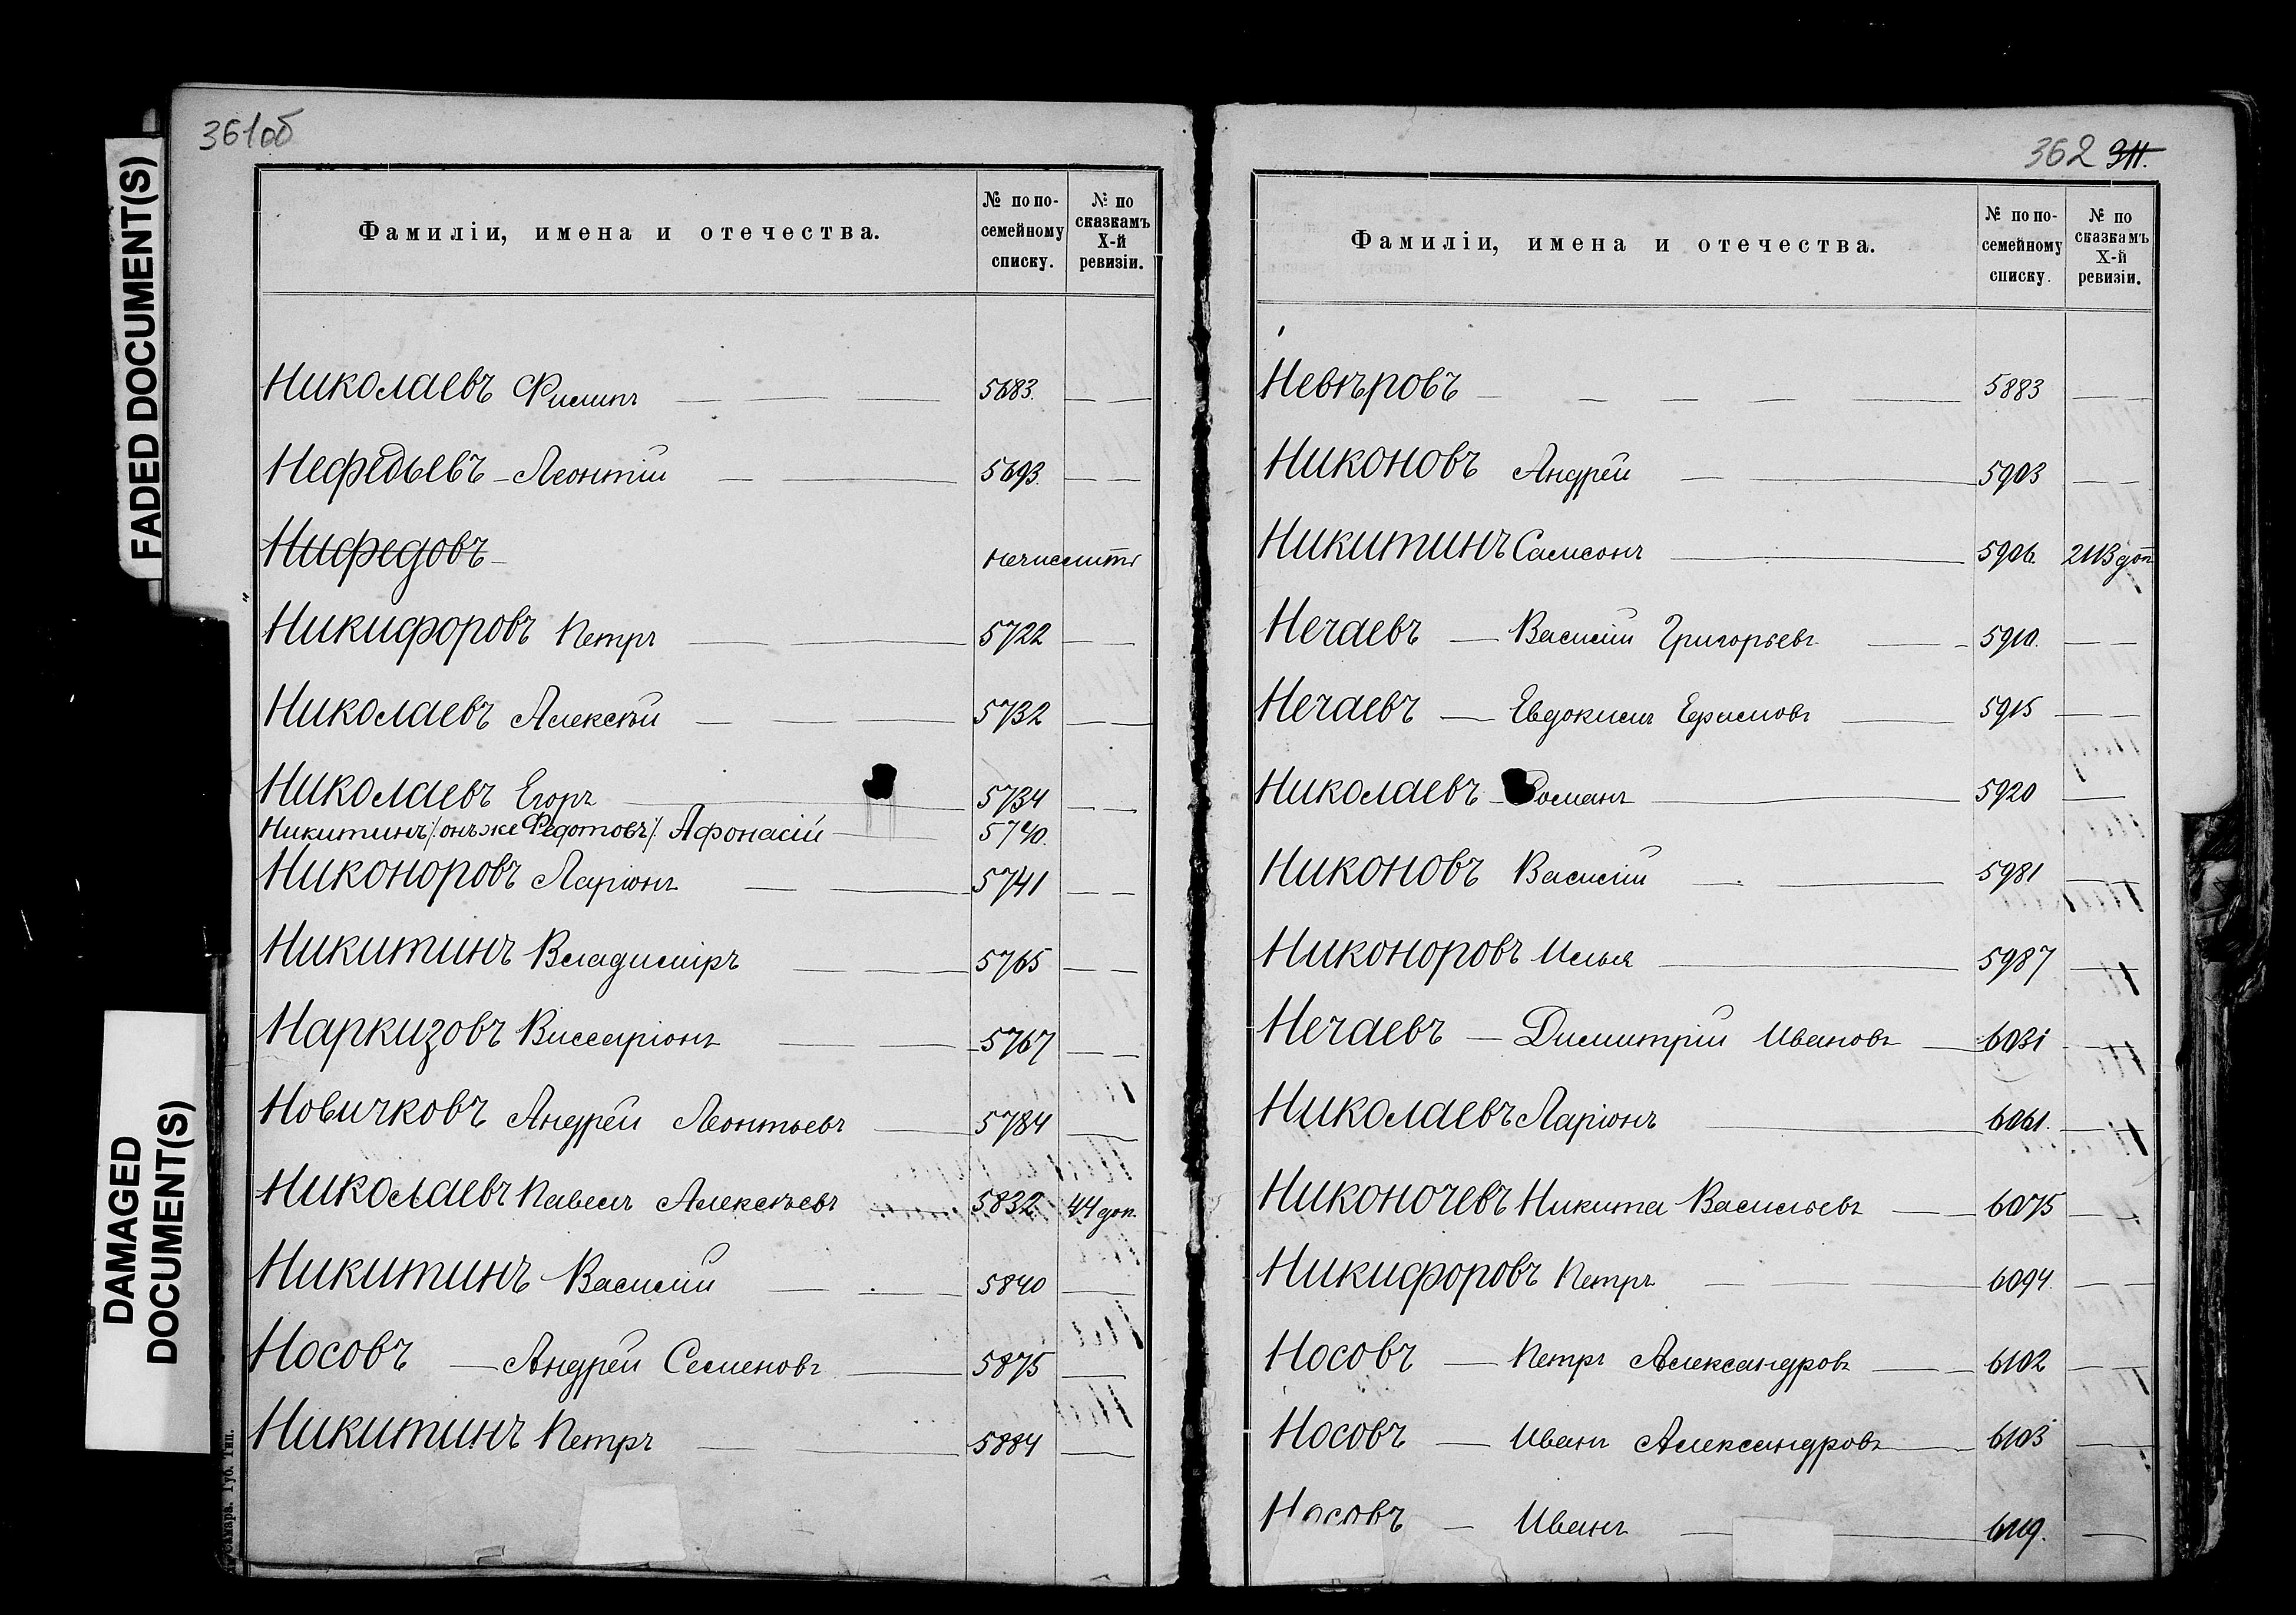 FADED DOCUMENT(S)
DAMAGED
DOCUMENT(S)
361об
Фамиліи, имена и отечества.
№ по по-
семейному
списку.
№ по
сказкамъ
X-й
ревизіи.
Николаевъ Филипъ 5683.
Нефедьевъ - Леонтій 5693.
Нифедовъ - нечислитъ
Никифоровъ Петръ 5722
Николаевъ Алексѣй 5732
Николаевъ Егоръ 5734
Никитинъ /:онъ же Федотовъ:/ Афонасій 5740.
Никоноровъ Ларіонъ 5741
Никитинъ Владиміръ 5765
Наркизовъ Виссаріонъ 5767
Новичковъ Андрей Леонтьевъ 5784
Николаевъ Павелъ Алексѣевъ 5832 44 доп.
Никитинъ Василій 5840
Носовъ — Андрей Семеновъ 5875
Никитинъ Петръ 5884
Губ. Тип.
362 311.
Фамиліи, имена и отечества.
№ по по-
семейному
списку.
№ по
сказкамъ
X-й
ревизіи.
Невѣровъ 5883
Никоновъ Андрей 5903
Никитинъ Самсонъ 5906. 213 доп
Нечаевъ — Василій Григорьевъ 5910.
Нечаевъ — Евдокимъ Ефимовъ 5915
Николаевъ - Романъ 5920
Никоновъ Василій 5981
Никоноровъ Илья 5987
Нечаевъ — Димитрій Ивановъ 6031
Николаевъ Ларіонъ 6061.
Никоночевъ Никита Васильевъ 6075
Никифоровъ Петръ 6094.
Носовъ — Петръ Александровъ 6102
Носовъ — Иванъ Александровъ 6103
Носовъ — Иванъ 6119.